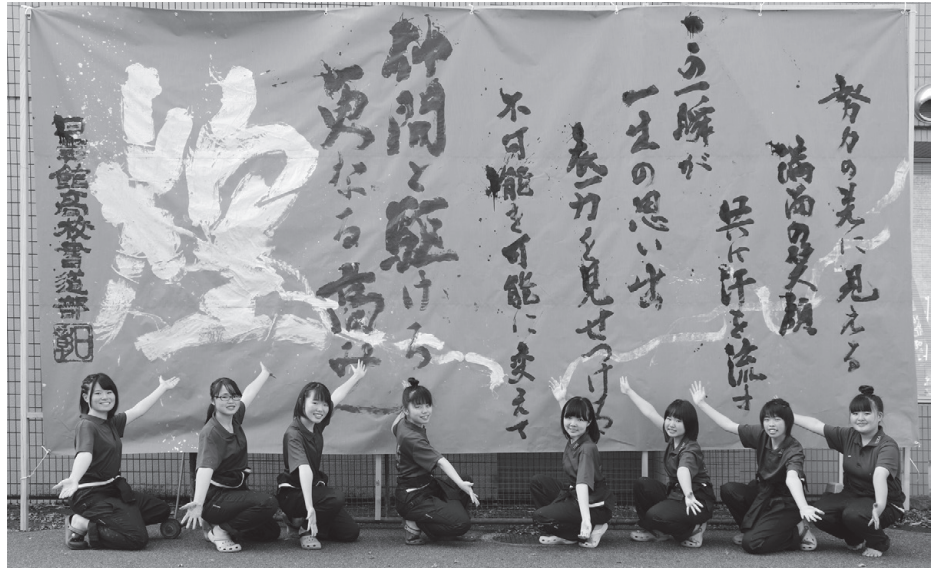 努力の先に見える
満面の笑顔
共に汗を流す
この一瞬が
一生の思い出
力を見せつけろ
不可能を可能に変えて
仲間と駆けろ
更なる高み
館高校書道部